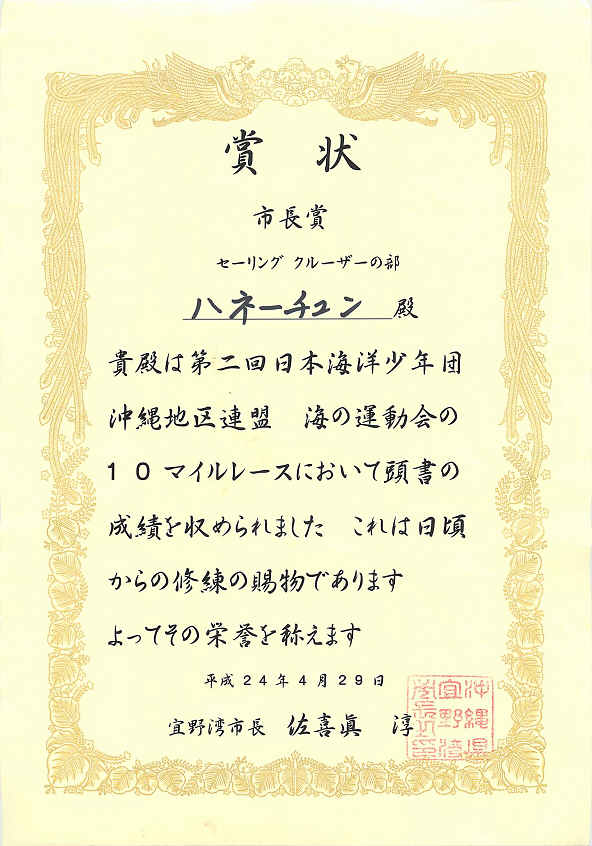 賞状
市長賞
セーリング クルーザーの部
ハネーチュン 殿
貴殿は第二回日本海洋少年団
沖縄地区連盟 海の運動会の
10マイルレースにおいて頭書の
成績を収められました これは日頃
からの修練の賜物であります
よってその栄誉を称えます
平成24年4月29日
宜野湾市長 佐喜眞 淳
沖縄県
宜野湾
市長之印